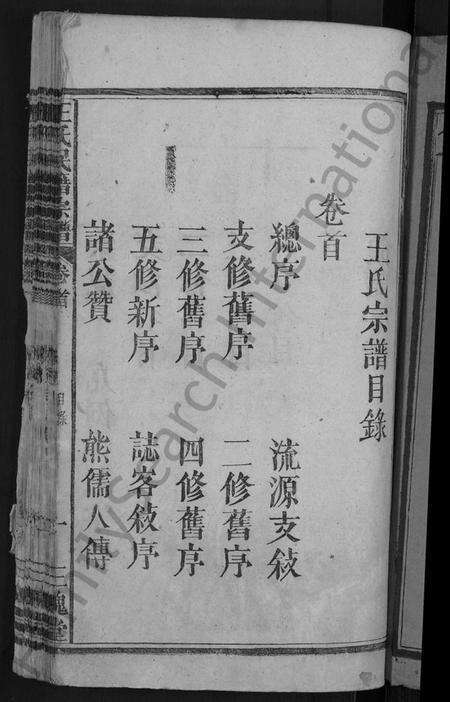 王氏宗譜目錄
卷首
總序 流源支敍
支修舊序 二修舊序
三修舊序 四修舊序
五修新序 誌客敍序
諸公贊 熊儒人傳
王氏宗譜 卷首 目錄 一 三槐堂
FamilySearch International